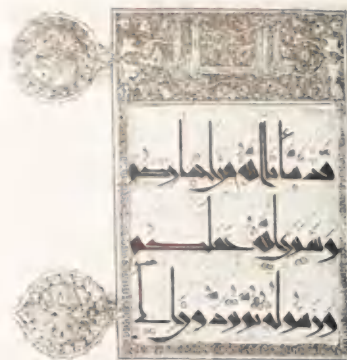 قد نبأنا الله من أخباركم
وسيرى الله عملكم
ورسوله ثم تردون إلى